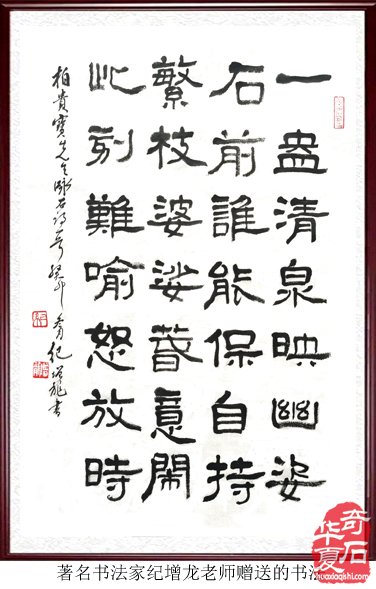 一盎清泉映幽姿
石前誰能保自持
繁枝婆娑春意閙
此刻難喻怒放時
柏貴寶先生石詩一首 癸卯 紀增龍書
著名书法家纪增龙老师赠送的书法
华夏奇石
huaxiaqishi.com